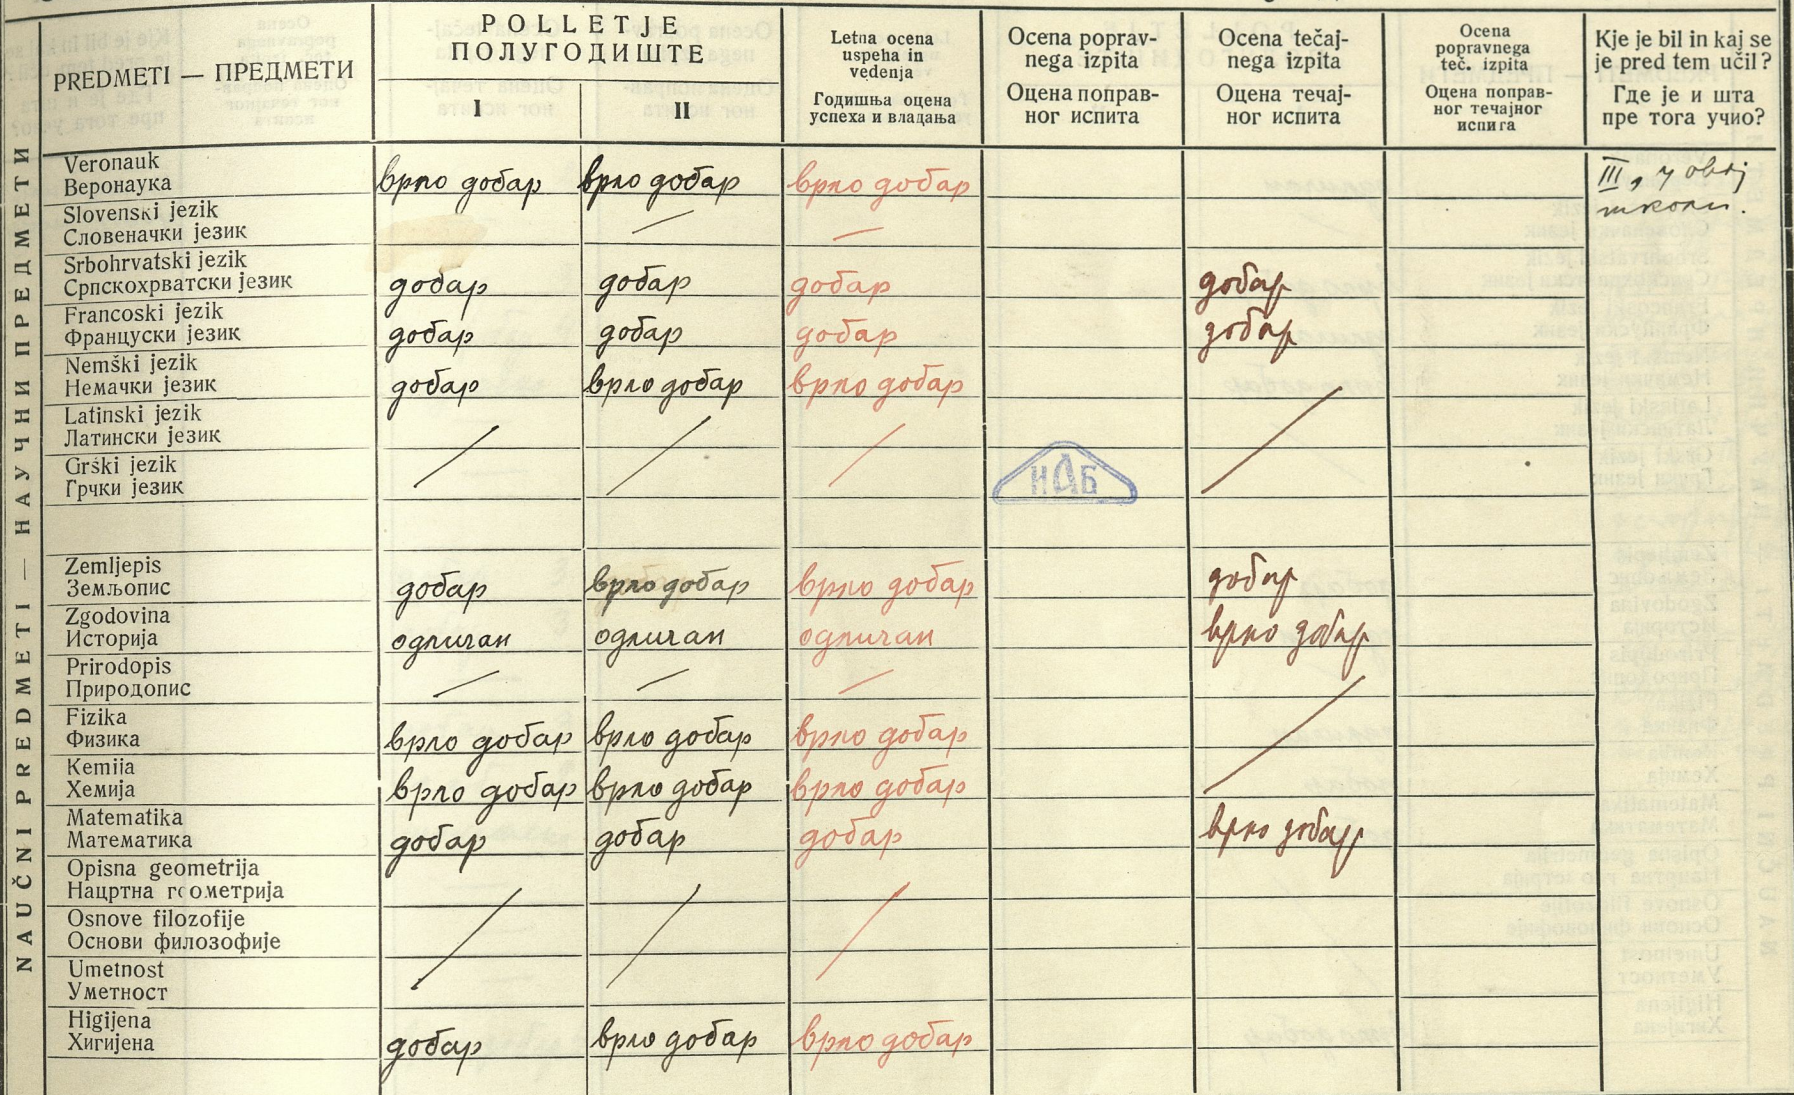 PREDMETI — ПРЕДМЕТИ
POLLETJE
ПОЛУГОДИШТЕ
I II
Letna ocena
uspeha in
vedenja
Годишња оцена
успеха и владања
Ocena poprav-
nega izpita
Оцена поправ-
ног испита
Ocena tečaj-
nega izpita
Оцена течај-
ног испита
Ocena
popravnega
teč. izpita
Оцена поправ-
ног течајног
испита
Kje je bil in kaj se
je pred tem učil?
Где је и шта
пре тога учио?
NAUČNI PREDMETI — НАУЧНИ ПРЕДМЕТИ
Veronauk
Веронаука врло добар врло добар врло добар
III, у овој
школи.
Slovenski jezik
Словеначки језик
Srbohrvatski jezik
Српскохрватски језик добар добар добар добар
Francoski jezik
Француски језик добар добар добар добар
Nemški jezik
Немачки језик добар врло добар врло добар
Latinski jezik
Латински језик
Grški jezik
Грчки језик
НАБ
Zemljepis
Земљопис добар врло добар врло добар добар
Zgodovina
Историја одличан одличан одличан врло добар
Prirodopis
Природопис
Fizika
Физика врло добар врло добар врло добар
Kemija
Хемија врло добар врло добар врло добар
Matematika
Математика добар добар добар врло добар
Opisna geometrija
Нацртна геометрија
Osnove filozofije
Основи филозофије
Umetnost
Уметност
Higijena
Хигијена добар врло добар врло добар